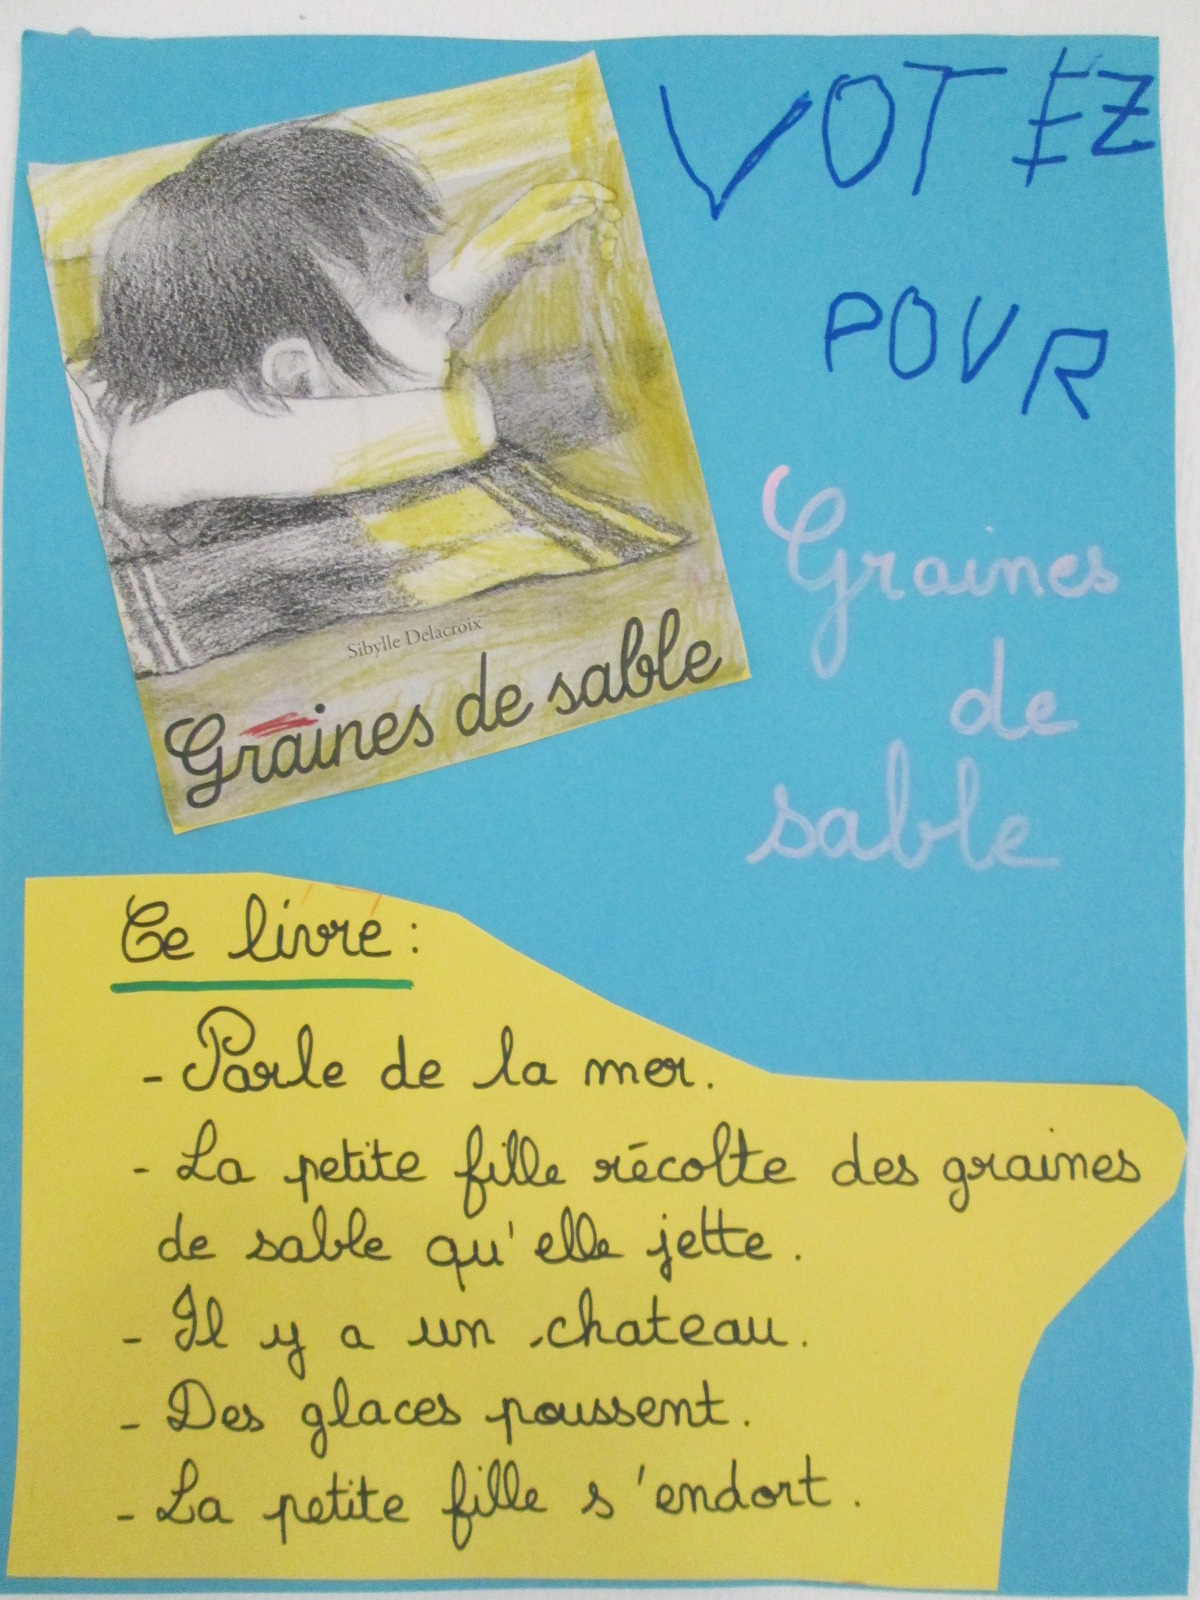 VOTEZ
POUR
Graines
de
sable
Sibylle Delacroix
Graines de sable
Ce livre :
- Parle de la mer.
- La petite fille récolte des graines
de sable qu'elle jette.
- Il y a un chateau.
- Des glaces poussent.
- La petite fille s'endort.